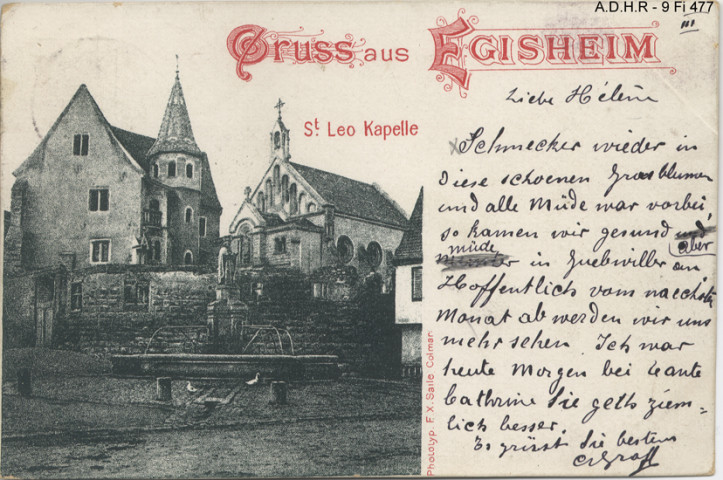 A.D.H.R - 9 Fi 477
III
Gruss aus EGISHEIM
St. Leo Kapelle
Liebe Hélène
Schmecker wieder in
diese schoenen Grasblumen
und alle Müde war vorbei,
so kamen wir gesund und aber
müde
in Guebwiller an
Hoffentlich vom naechsten
Monat ab werden wir uns
mehr sehen. Ich war
heute Morgen bei Tante
Cathrine Sie geth ziem=
lich besser.
Es grüsst Sie bestens
Phototyp. F. X. Saile Colmar.